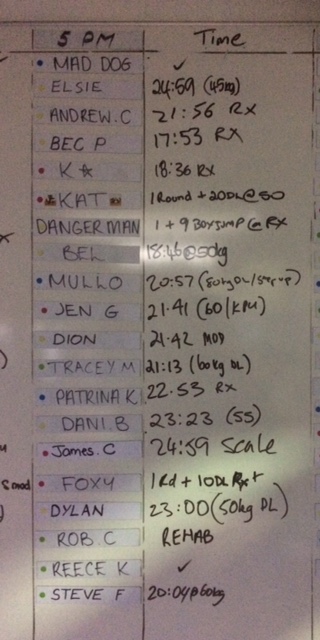 5 PM Time
MAD DOG ✓
ELSIE 24:59 (45kg)
ANDREW.C 21:56 RX
BEC P 17:53 RX
K ☆ 18:36 RX
KAT 1 Round + 20DL@50
DANGERMAN 1 + 9 BOXJUMP @ RX
BEL 18:46@50kg
MULLO 20:57 (80kg DL/step up)
JEN G 21:41 (60/KPU)
DION 21:42 MOD
TRACEY M 21:13 (60kg DL)
PATRINA K 22.53 RX
DANI.B 23:23 (55)
James.C 24:59 Scale
FOXY 1Rd + 10DL
DYLAN 23:00 (50kg DL)
ROB.C REHAB
REECE K ✓
STEVE F 20:04@60kg